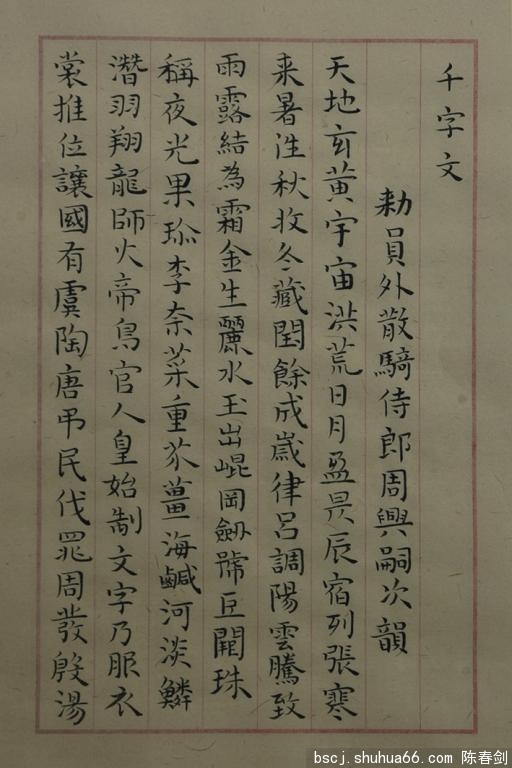 千字文
勑員外散騎侍郎周興嗣次韻
天地玄黃宇宙洪荒日月盈昃辰宿列張寒
来暑往秋收冬藏閏餘成歲律呂調陽雲騰致
雨露結為霜金生麗水玉出崐岡劒號巨闕珠
稱夜光果珎李柰菜重芥薑海鹹河淡鱗
潛羽翔龍師火帝鳥官人皇始制文字乃服衣
裳推位讓國有虞陶唐弔民伐罪周發殷湯
bscj.shuhua66.com 陈春剑